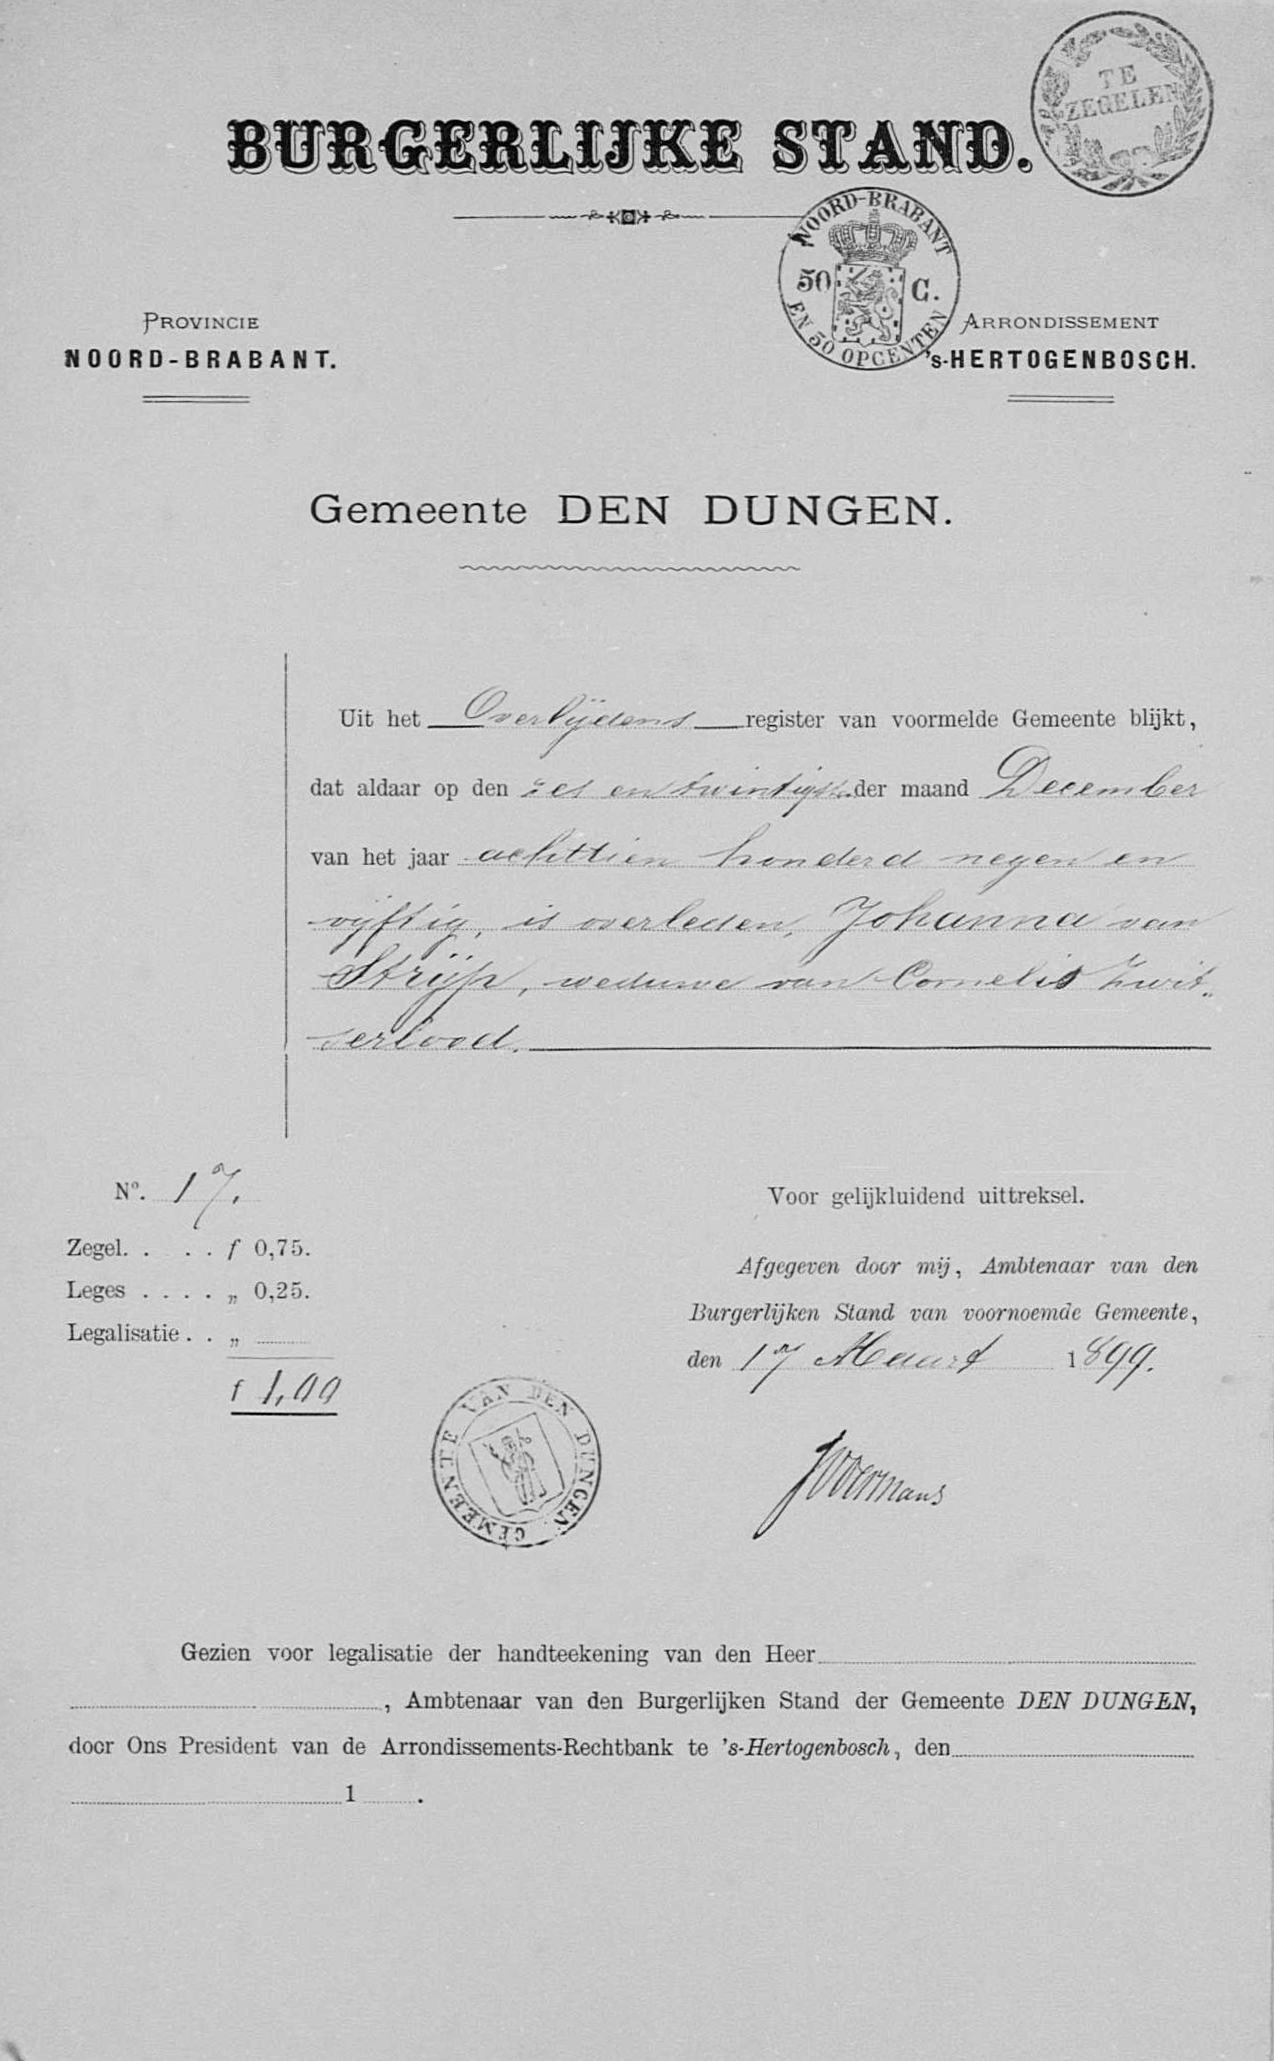 TE
ZEGELEN
BURGERLIJKE STAND.
NOORD-BRABANT
50 C.
EN 50 OPCENTEN
PROVINCIE
NOORD-BRABANT.
ARRONDISSEMENT
's-HERTOGENBOSCH.
Gemeente DEN DUNGEN.
Uit het Overlijdens register van voormelde Gemeente blijkt,
dat aldaar op den zes en twintigste der maand December
van het jaar achttien honderd negen en
vijftig, is overleden, Johanna van
Strijp, weduwe van Cornelis Zwit„
serlood.
No. 17.
Zegel. . . . f 0,75.
Leges . . . . „ 0,25.
Legalisatie . . „
f 1,00
Voor gelijkluidend uittreksel.
Afgegeven door mij, Ambtenaar van den
Burgerlijken Stand van voornoemde Gemeente,
den 17 Maart 1899.
GEMEENTE VAN DEN DUNGEN
Gezien voor legalisatie der handteekening van den Heer
, Ambtenaar van den Burgerlijken Stand der Gemeente DEN DUNGEN,
door Ons President van de Arrondissements-Rechtbank te 's-Hertogenbosch, den
1 .